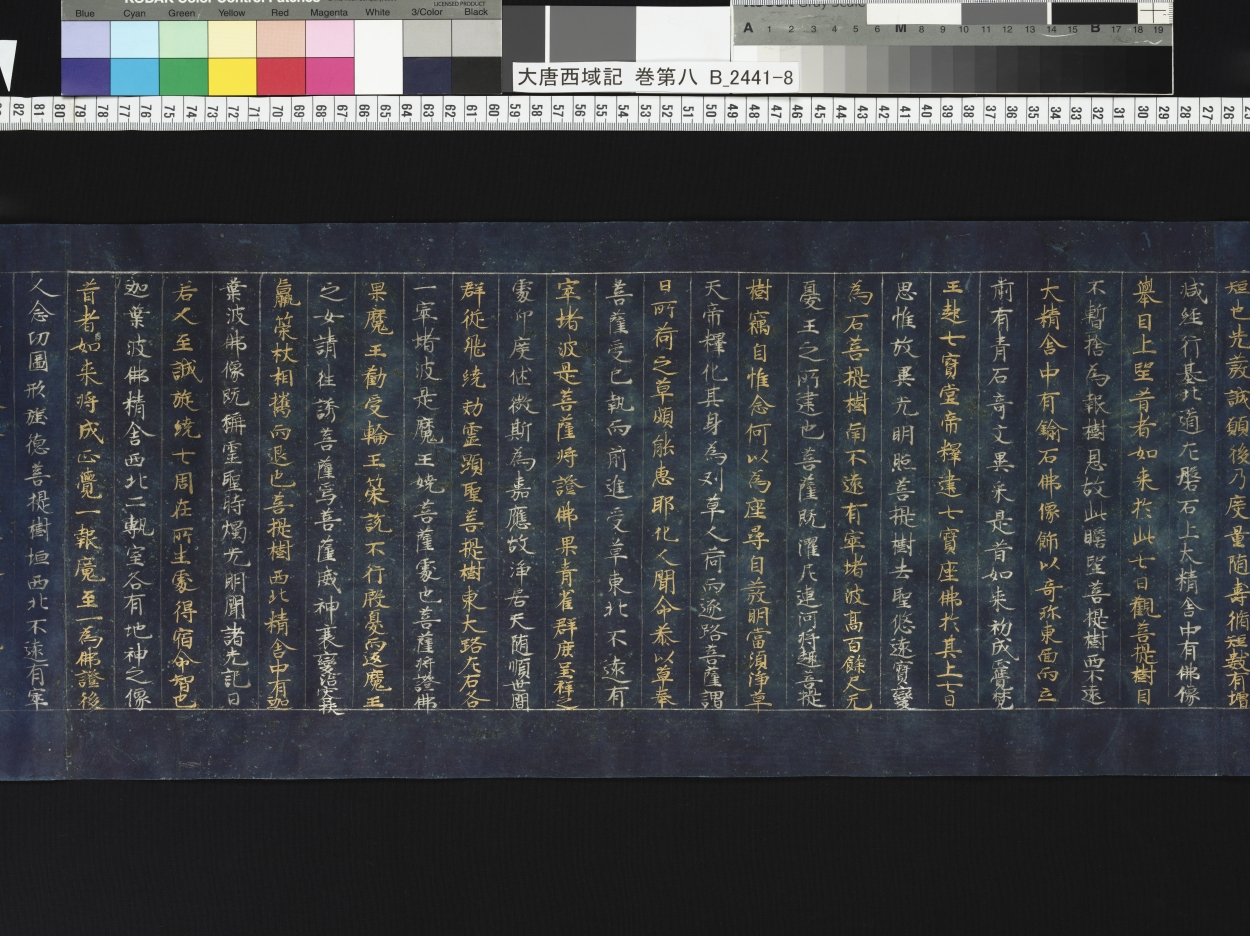 KODAK Color Control Patches
LICENSED PRODUCT
Blue Cyan Green Yellow Red Magenta White 3/Color Black
A 1 2 3 4 5 6 M 8 9 10 11 12 13 14 15 B 17 18 19
大唐西域記 巻第八 B_2441-8
82 81 80 79 78 77 76 75 74 73 72 71 70 69 68 67 66 65 64 63 62 61 60 59 58 57 56 55 54 53 52 51 50 49 48 47 46 45 44 43 42 41 40 39 38 37 36 35 34 33 32 31 30 29 28 27 26
垣也先發誠願後乃度量随壽脩短數有增
減經行基北道左盤石上大精舍中有佛像
舉目上望昔者如来於此七日觀菩提樹目
不暫捨為報樹恩故此瞻望菩提樹西不遠
大精舍中有鍮石佛像飾以奇珎東面而立
前有青石奇文異采是昔如来初成覺
王起七寶堂帝釋建七寶座佛於其上七日
思惟放異光明照菩提樹去聖悠遠寶變
為石菩提樹南不遠有窣堵波高百餘尺无
憂王之所建也菩薩既濯尼連河将趣菩提
樹竊自惟念何以為座尋自發明當須淨草
天帝釋化其身為刈草人荷而逐路菩薩謂
曰所荷之草頗能惠耶化人聞命恭以草奉
菩薩受已執而前進受草東北不遠有
窣堵波是菩薩将證佛果青雀群鹿呈祥之
處印度休徴斯為嘉應故淨居天随順世間
群從飛繞効靈顯聖菩提樹東大路左右各
一窣堵波是魔王嬈菩薩處也菩薩将證佛
果魔王勸受輪王策說不行殷憂而返魔王
之女請往誘菩薩焉菩薩威神衰變冶容扶
羸策杖相攜而退也菩提樹西北精舍中有迦
葉波佛像既稱靈聖時燭光明聞諸先記曰
若人至誠旋繞七周在所生處得宿命智也
迦葉波佛精舍西北二甎室各有地神之像
昔者如来将成正覺一報魔至一為佛證後
人念功圖形旌德菩提樹垣西北不遠有窣